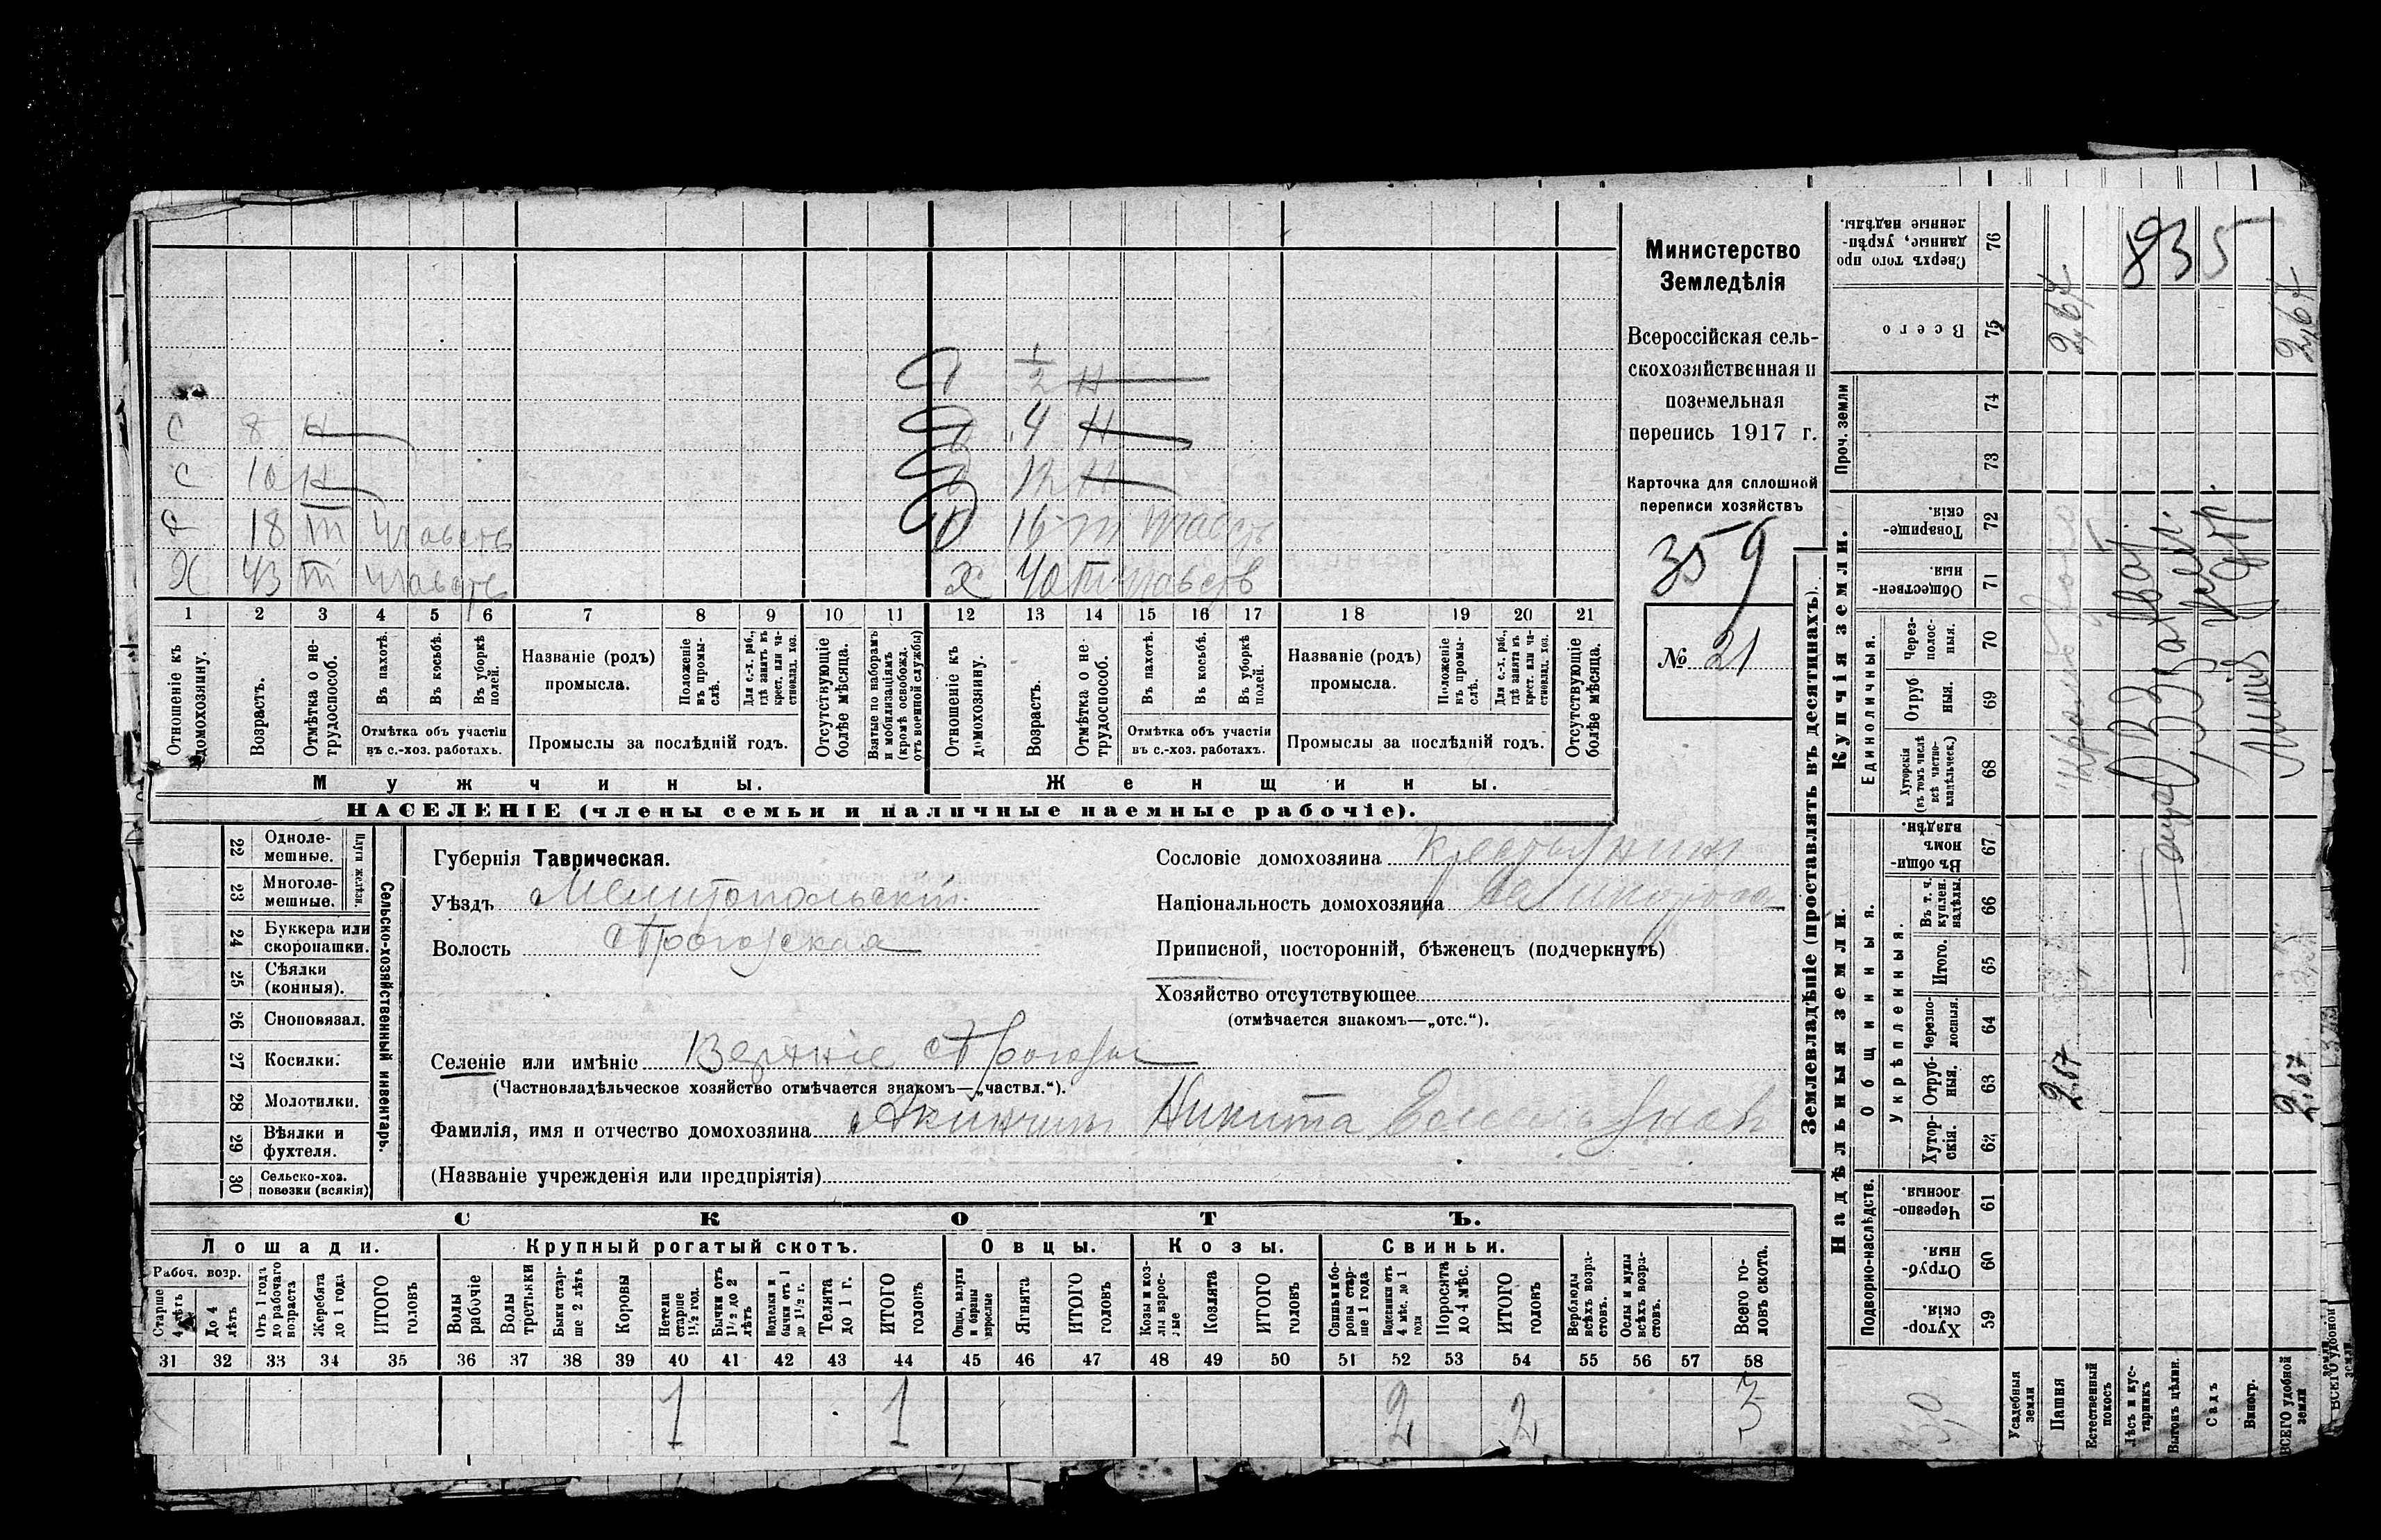 Министерство
Земледѣлія
Всероссійская сель-
скохозяйственная и
поземельная
перепись 1917 г.
Карточка для сплошной
переписи хозяйствъ
359
№ 21
1/2 Н
С 8 Н
4 Н
С 10 Н
12 Н
18 т
16 т
Х 43 т
Х 40 т
1 2 3 4 5 6 7 8 9 10 11 12 13 14 15 16 17 18 19 20 21
Отношеніе къ домохозяину.
Возрастъ.
Отмѣтка о не-трудоспособ.
Въ пахотѣ.
Въ косьбѣ.
Въ уборкѣ полей.
Отмѣтка объ участіи
въ с.-хоз. работахъ.
Названіе (родъ)
промысла.
Положеніе въ промы-слѣ.
Для с.-х. раб., гдѣ занятъ въ крест. или ча-стновлад. хоз.
Промыслы за послѣдній годъ.
Отсутствующіе болѣе мѣсяца.
Взятые по наборамъ и мобилизаціямъ (кромѣ освобожд. отъ военной службы)
Отношеніе къ домохозяину.
Возрастъ.
Отмѣтка о не-трудоспособ.
Въ пахотѣ.
Въ косьбѣ.
Въ уборкѣ полей.
Отмѣтка объ участіи
въ с.-хоз. работахъ.
Названіе (родъ)
промысла.
Положеніе въ промы-слѣ.
Для с.-х. раб., гдѣ занята въ крест. или ча-стновлад. хоз.
Промыслы за послѣдній годъ.
Отсутствующіе болѣе мѣсяца.
Мужчины.
Женщины.
НАСЕЛЕНІЕ (члены семьи и наличные наемные рабочіе).
22 Одноле-мешные.
23 Многоле-мешные.
Плуги желѣзн.
24 Буккера или скоропашки.
25 Сѣялки (конныя).
26 Сноповязал.
27 Косилки.
28 Молотилки.
29 Вѣялки и фухтеля.
30 Сельско-хоз. повозки (всякія)
Сельско-хозяйственный инвентарь.
Губернія Таврическая.
Уѣздъ Мелитопольскій
Волость
Сословіе домохозяина Крестьянин
Національность домохозяина
Приписной, посторонній, бѣженецъ (подчеркнуть)
Хозяйство отсутствующее
(отмѣчается знакомъ—„отс.“).
Селеніе или имѣніе Верхніе
(Частновладѣльческое хозяйство отмѣчается знакомъ—„частвл.“).
Фамилія, имя и отчество домохозяина Никита
(Названіе учрежденія или предпріятія)
СКОТЪ.
Лошади.
Крупный рогатый скотъ.
Овцы.
Козы.
Свиньи.
Рабоч. возр.
Старше 4 лѣтъ
До 4 лѣтъ
Отъ 1 года до рабочаго возраста
Жеребята до 1 года
ИТОГО головъ
Волы рабочіе
Волы третьяки
Быки стар-ше 2 лѣтъ
Коровы
Нетели старше 1½ год.
Бычки отъ 1½ до 2 лѣтъ
Подтелки и бычки отъ 1 до 1½ г.
Телята до 1 г.
ИТОГО головъ
Овцы, валухи и бараны взрослые
Ягнята
ИТОГО головъ
Козы и коз-лы взрос-лые
Козлята
ИТОГО головъ
Свиньи и бо-ровы стар-ше 1 года
Подсвинки отъ 4 мѣс. до 1 года
Поросята до 4 мѣс.
ИТОГО головъ
Верблюды всѣхъ возра-стовъ.
Ослы и мулы всѣхъ возра-стовъ.
Всего го-ловъ скота.
31 32 33 34 35 36 37 38 39 40 41 42 43 44 45 46 47 48 49 50 51 52 53 54 55 56 57 58
1 1 2 2 3
Землевладѣніе (проставлять въ десятинахъ).
Надѣльныя земли.
Купчія земли.
Подворно-наслѣдств.
Общинныя.
Укрѣпленныя.
Единоличныя.
Проч. земли
Хутор-скія. 59
Отруб-ныя. 60
Черезпо-лосныя. 61
Хутор-скія. 62
Отруб-ныя. 63
Черезпо-лосныя. 64
Итого. 65
Въ т. ч. куплен. надѣлы. 66
Въ общин-номъ владѣн. 67
Хуторскія (въ томъ числѣ всѣ частно-владѣльческ.) 68
Отруб ныя. 69
Через-полос-ныя. 70
Обществен-ныя. 71
Товарище-скія. 72
73
74
Всего 75
Сверхъ того про данные, укрѣп-ленные надѣлы. 76
Усадебныя земли
Пашня
Естественный покосъ
Лѣсъ и кус-тарникъ
Выгонъ цѣлин.
Садъ
Виногр.
ВСЕГО удобной земли
2,67
2,67
835
2,67
2,67